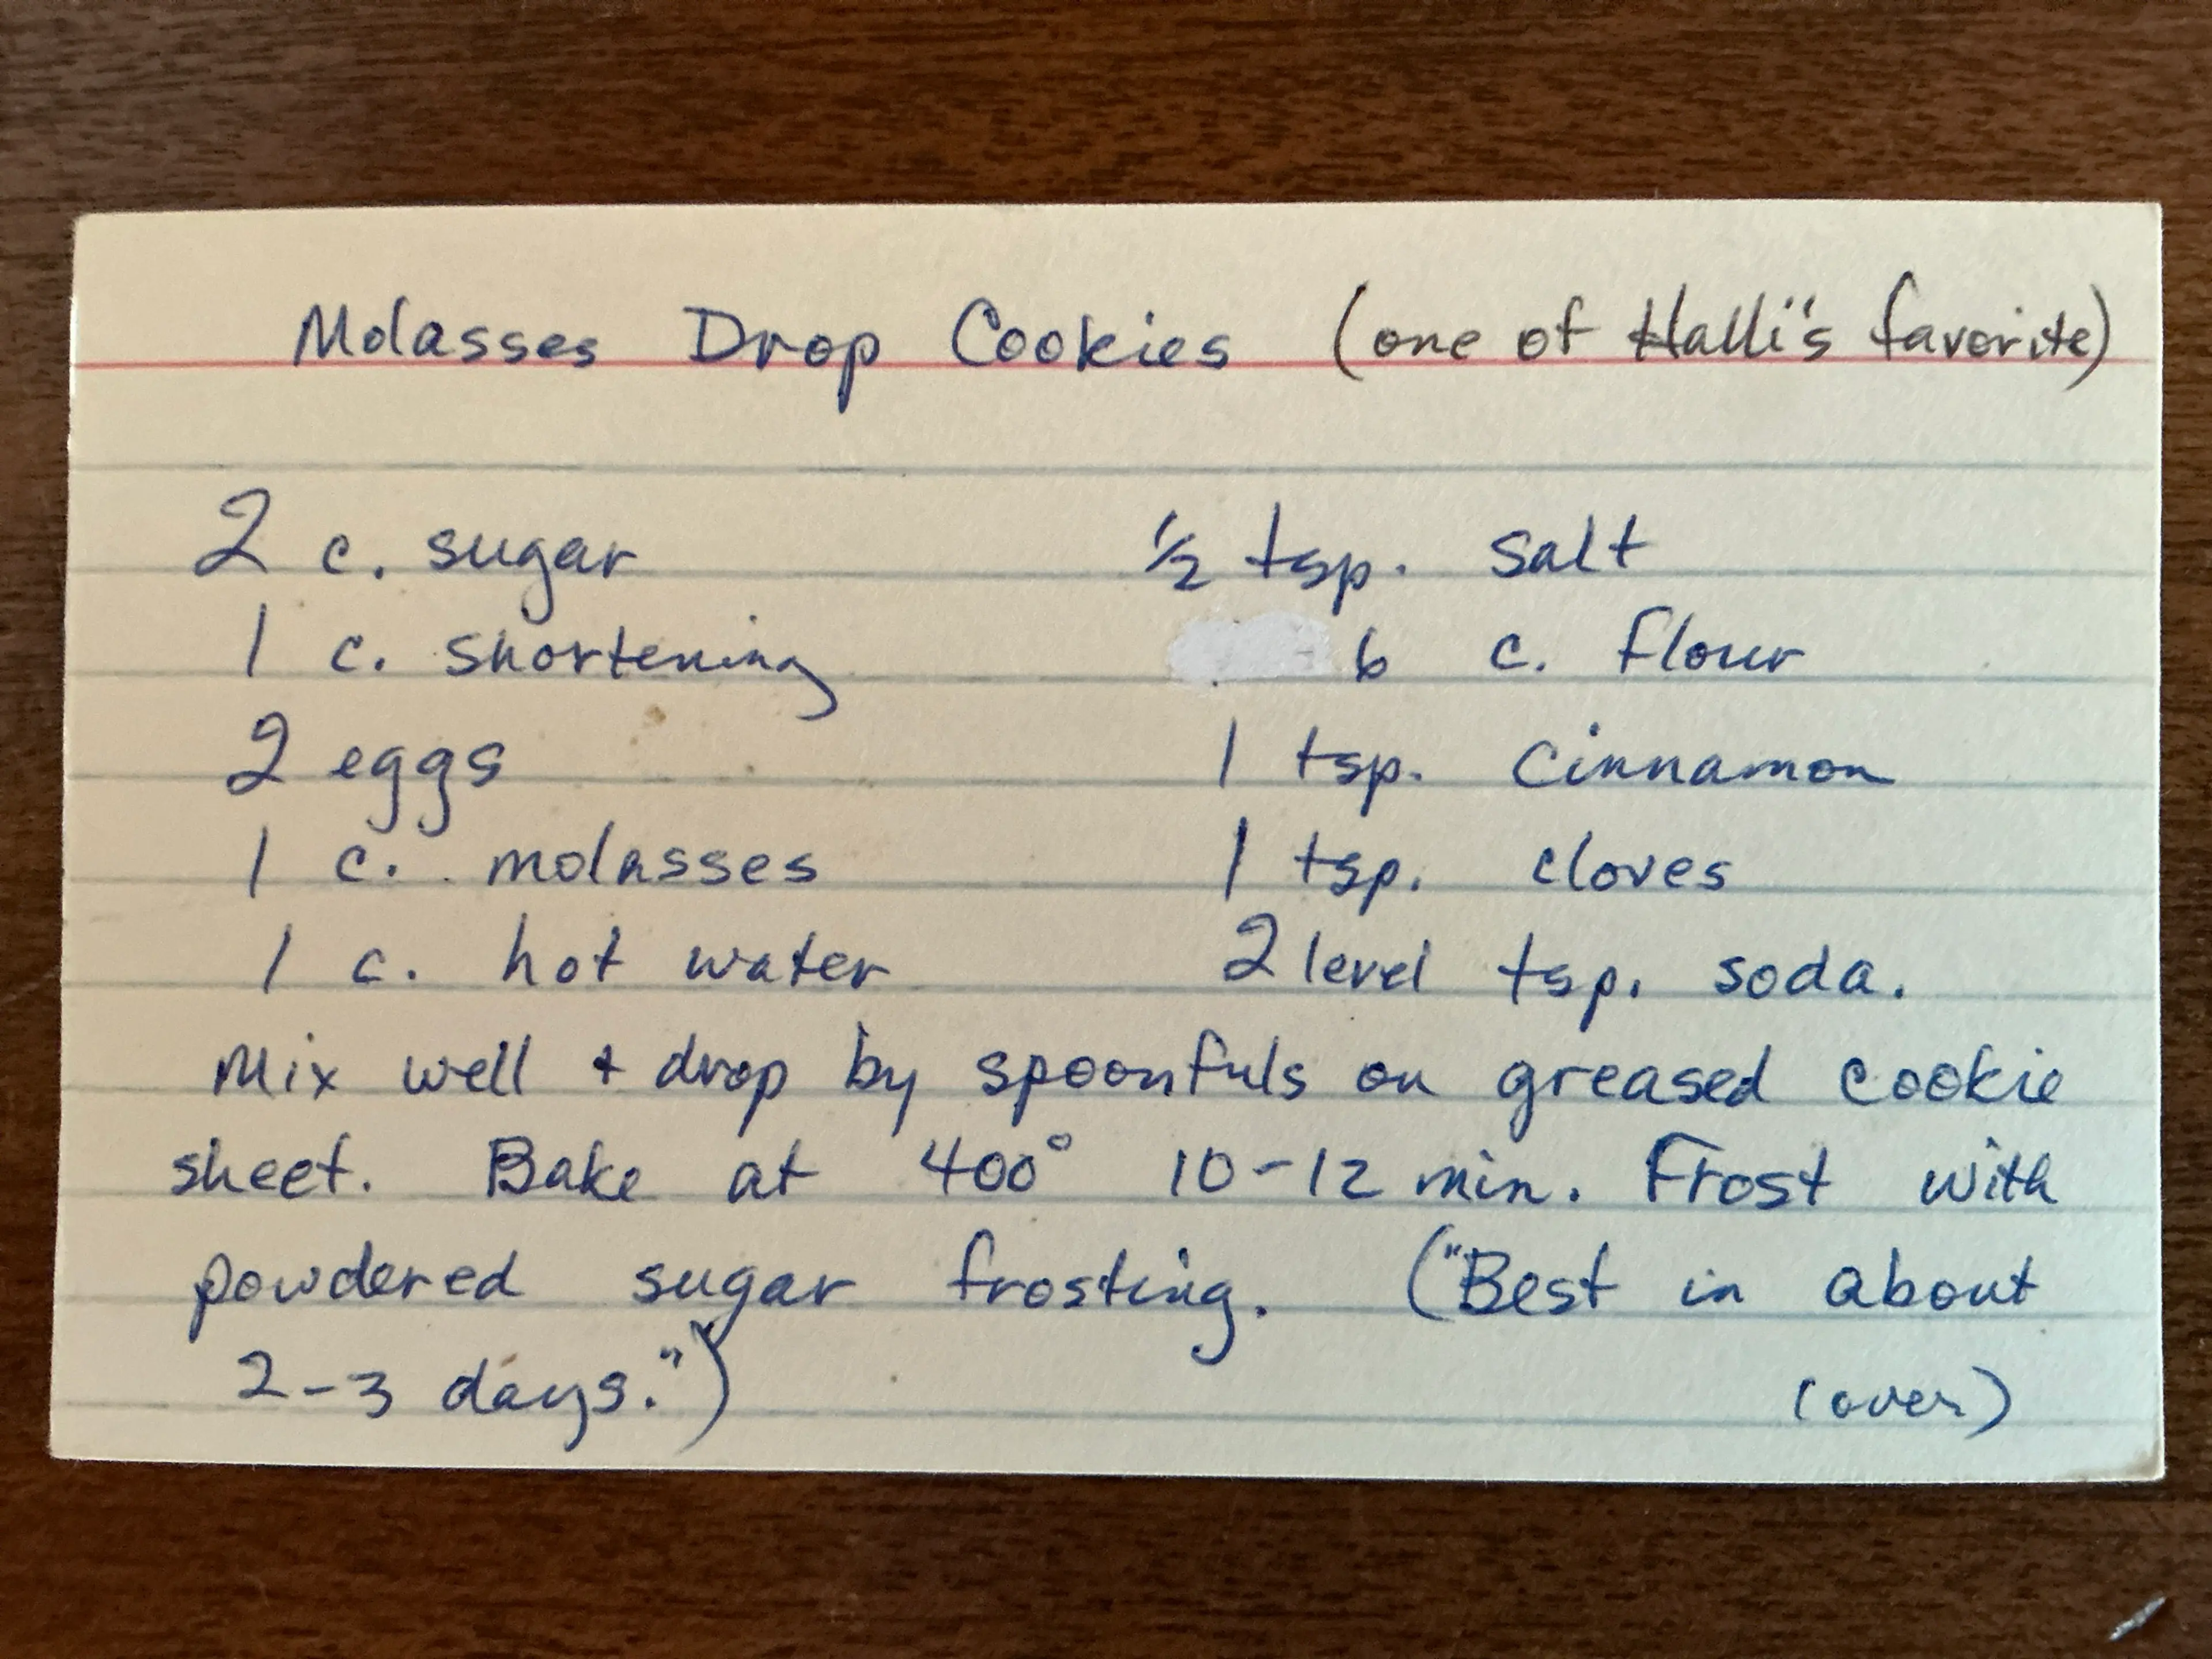 Molasses Drop Cookies (one of Halli's favorite)
2 c. sugar ½ tsp. salt
1 c. shortening 6 c. flour
2 eggs 1 tsp. cinnamon
1 c. molasses 1 tsp. cloves
1 c. hot water 2 level tsp. soda.
Mix well & drop by spoonfuls on greased cookie
sheet. Bake at 400° 10-12 min. Frost with
powdered sugar frosting. ("Best in about
2-3 days.")
(over)